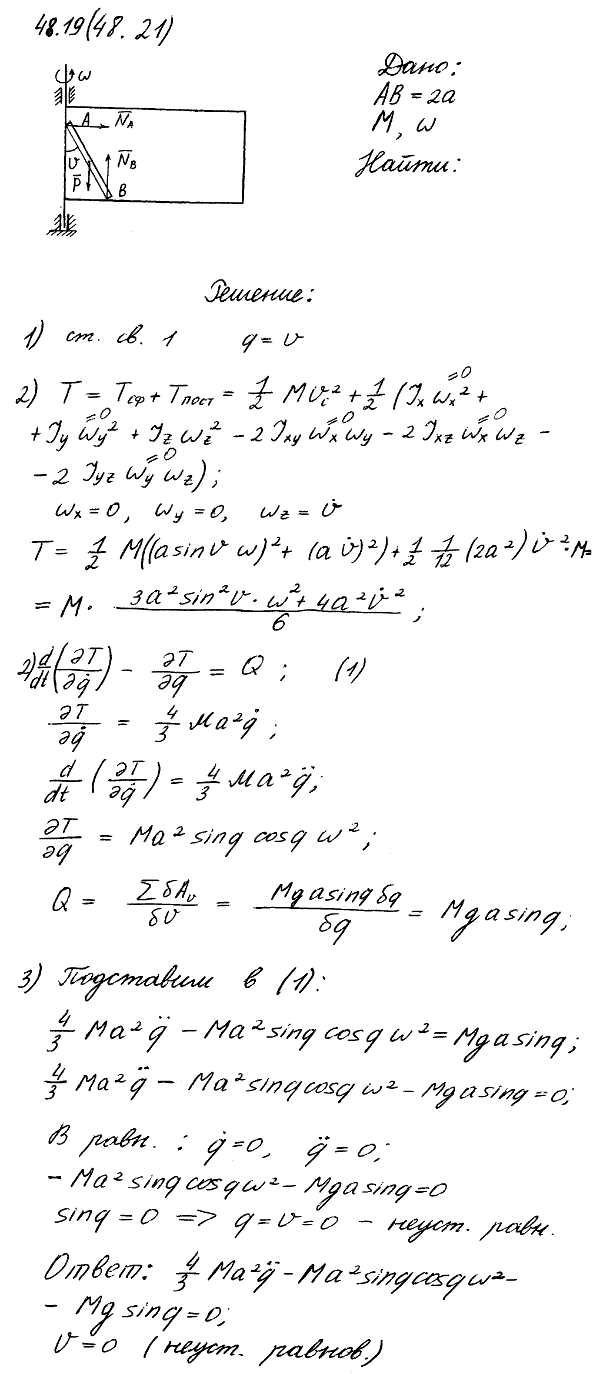 48.19(48.21)
Дано:
AB = 2a
M, ω
Найти:
ω
A N̅_A
υ N̅_B
P̅ B
Решение:
1) ст. св. 1 q = υ
2) T = T_сф + T_пост = 1/2 M υ_c² + 1/2 (J_x ω_x² (=0) +
+ J_y ω_y² (=0) + J_z ω_z² − 2 J_xy ω_x (=0) ω_y − 2 J_xz ω_x (=0) ω_z −
− 2 J_yz ω_y (=0) ω_z);
ω_x = 0, ω_y = 0, ω_z = υ̇
T = 1/2 M((a sin υ ω)² + (a υ̇)²) + 1/2 1/12 (2a²) υ̇² · M =
= M · (3a² sin² υ · ω² + 4a² υ̇²)/6 ;
2) d/dt (∂T/∂q̇) − ∂T/∂q = Q ; (1)
∂T/∂q̇ = 4/3 Ma² q̇ ;
d/dt (∂T/∂q̇) = 4/3 Ma² q̈;
∂T/∂q = Ma² sin q cos q ω² ;
Q = ΣδA_υ/δυ = Mg a sin q δq/δq = Mg a sin q;
3) Подставим в (1):
4/3 Ma² q̈ − Ma² sin q cos q ω² = Mg a sin q;
4/3 Ma² q̈ − Ma² sin q cos q ω² − Mg a sin q = 0;
В равн. : q̇ = 0, q̈ = 0;
− Ma² sin q cos q ω² − Mg a sin q = 0
sin q = 0 => q = υ = 0 − неуст. равн.
Ответ: 4/3 Ma² q̈ − Ma² sin q cos q ω² −
− Mg sin q = 0;
υ = 0 (неуст. равнов.)